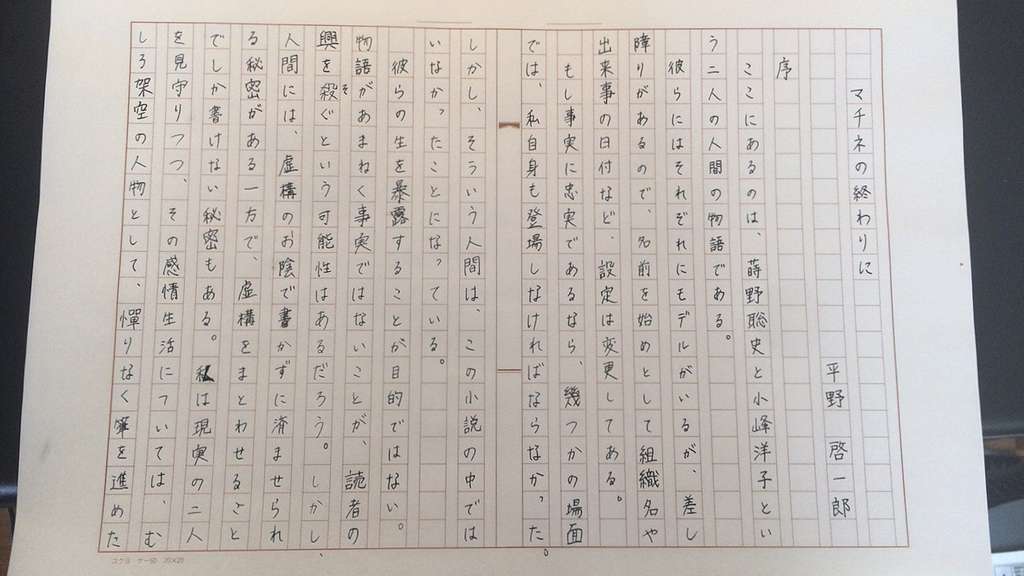 マチネの終わりに
平野 啓一郎
序
ここにあるのは、蒔野聡史と小峰洋子とい
う二人の人間の物語である。
彼らにはそれぞれにモデルがいるが、差し
障りがあるので、名前を始めとして組織名や
出来事の日付など、設定は変更してある。
もし事実に忠実であるなら、幾つかの場面
では、私自身も登場しなければならなかった
しかし、そういう人間は、この小説の中では
いなかったことになっている。
彼らの生を暴露することが目的ではない。
物語があまねく事実ではないことが、読者の
興を殺ぐという可能性はあるだろう。しかし、
人間には、虚構のお陰で書かずに済ませられ
る秘密がある一方で、虚構をまとわせること
でしか書けない秘密もある。私は現実の二人
を見守りつつ、その感情生活については、む
しろ架空の人物として、憚りなく筆を進めた
コクヨ ケ-50 20×20